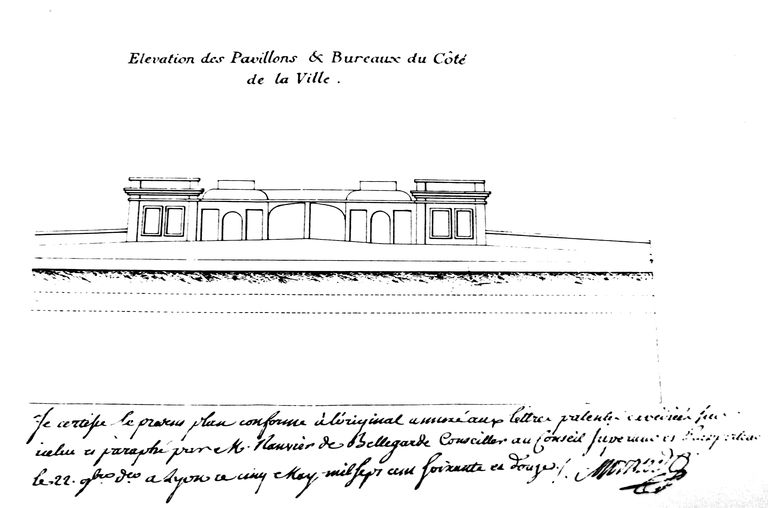 Elevation des Pavillons & Bureaux du Côté
de la Ville .
Je certifie le present plan conforme à l'original annexé aux lettres patentes
icelui et paraphé par M. Ranvier de Bellegarde Conseiller au Conseil Superieur et
le 22. 9bre dr a Lyon ce cinq May mil sept cent soixante et douze